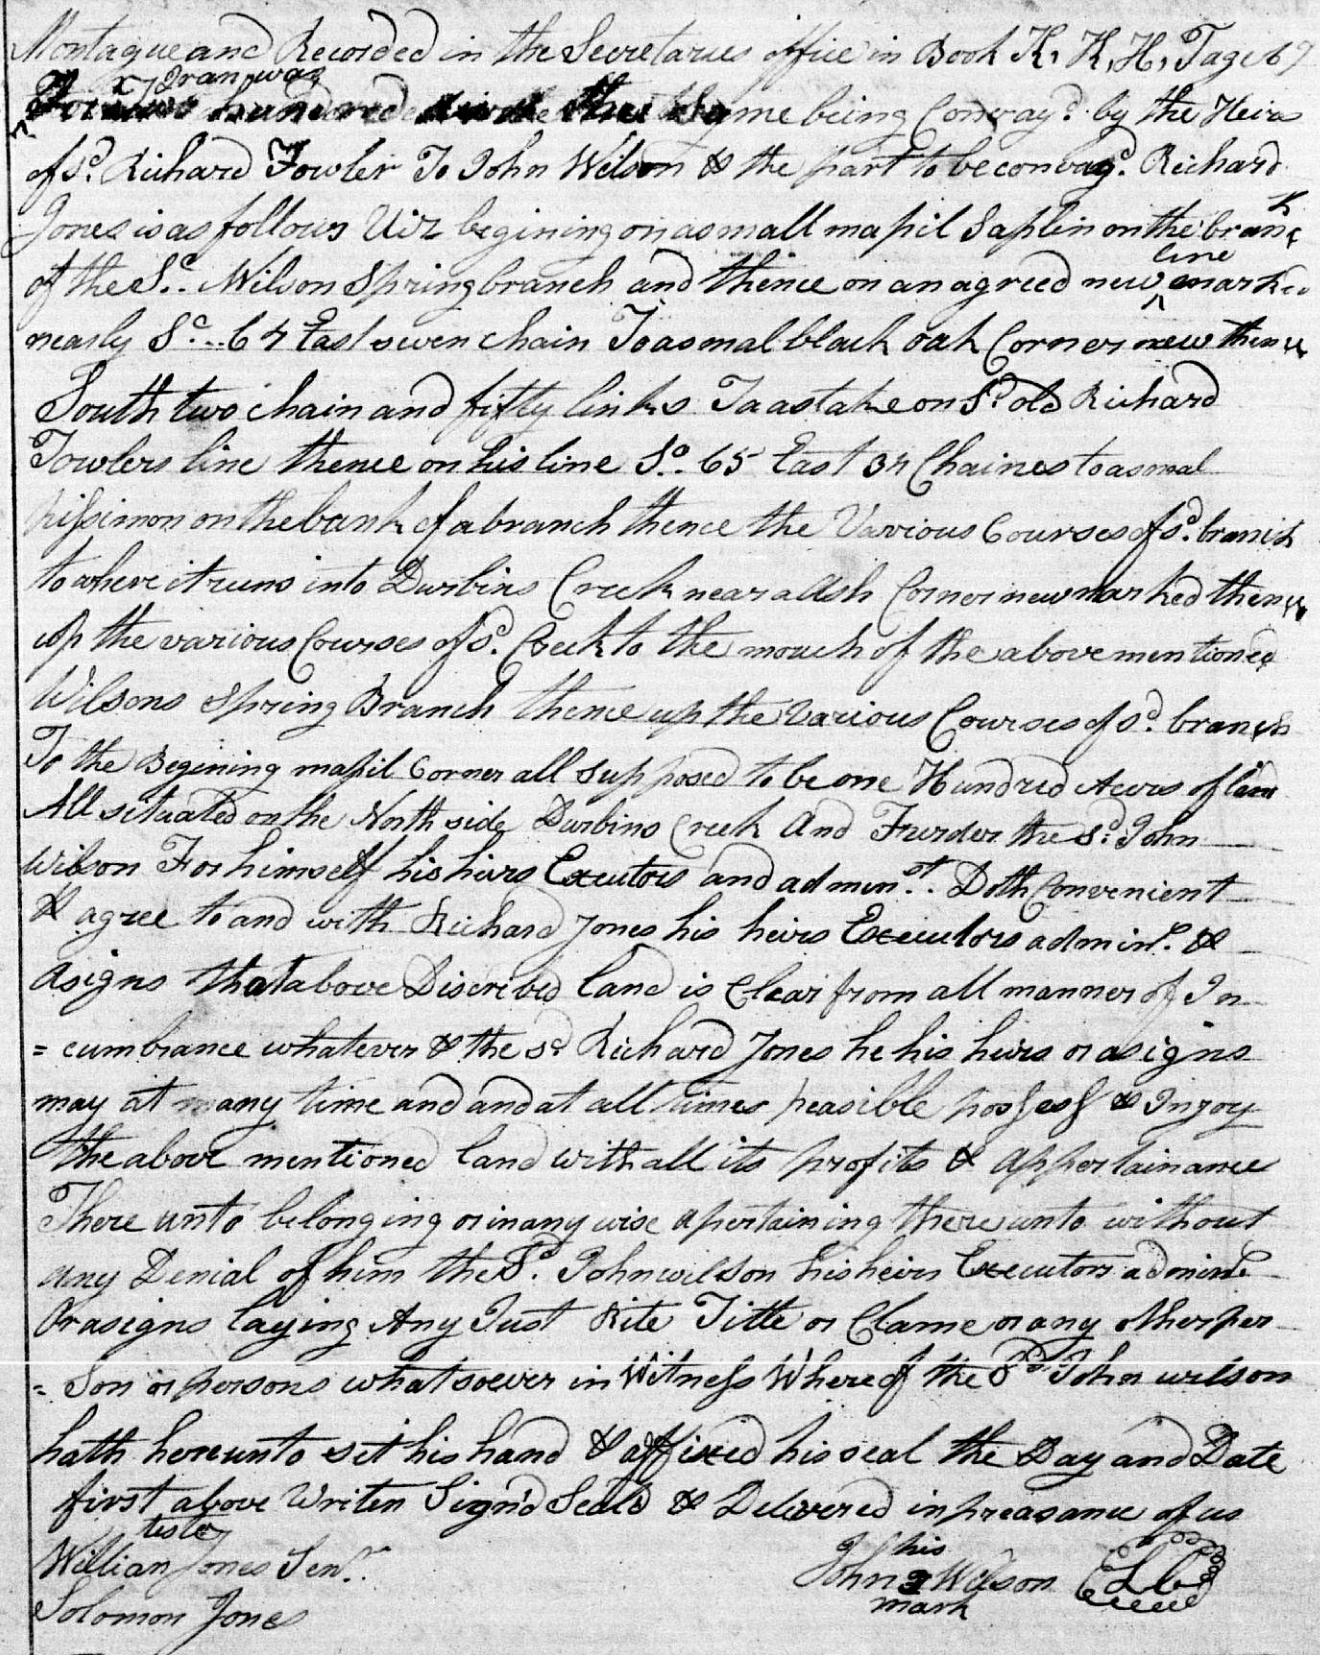 Montague and Recorded in the Secretaries office in Book K, K, H, Page 67
the same being Convay.d by the Heirs
of s.d Richard Fowler To John Wilson & the part to be convay.d Richard
Jones is as follows Viz begining on a small mapil Saplin on the branch
of the S.d Wilson Spring branch and thence on an agreed new line marked
nearly S.o 64 East seven chain To a smal black oak Corner new thence
South two chain and fifty links To a stake on S.d old Richard
Fowlers line thence on his line S.o 65 East 34 Chaines to a smal
on the bank of a branch thence the Various Courses of s.d branch
to where it runs into Durbins Creek near a Ash Corner new marked thence
up the various Courses of s.d Creek to the mouch of the above mentioned
Wilsons Spring Branch thence up the Various Courses of s.d branch
To the Begining mapil Corner all supposed to be one Hundred Acers of land
All situated on the North side Durbins Creek And Furder the s.d John
Wilson For himself his heirs Executors and admin.st Doth Convenient
& agree to and with Richard Jones his heirs Executors admin.t &
asigns that above Discribed land is Clear from all manner of In
= cumbrance whatever & the s.d Richard Jones he his heirs or asigns
may at any time and and at all times peasible possess & Injoy
the above mentioned land with all its profits & appertainance
There unto belonging or in any wise apertaining there unto without
any Denial of him the S.d John wilson his heirs Executors
Or asigns laying Any Just Rite Title or Clame or any other per
= son or persons whatsoever in Witness Whereof the S.d John wilson
hath hereunto set his hand & affixed his seal the Day and Date
first above Writen Sign'd Seald & Delivered in preasance of us
teste
William Jones Sen.r
Solomon Jones
his
John Wilson
mark